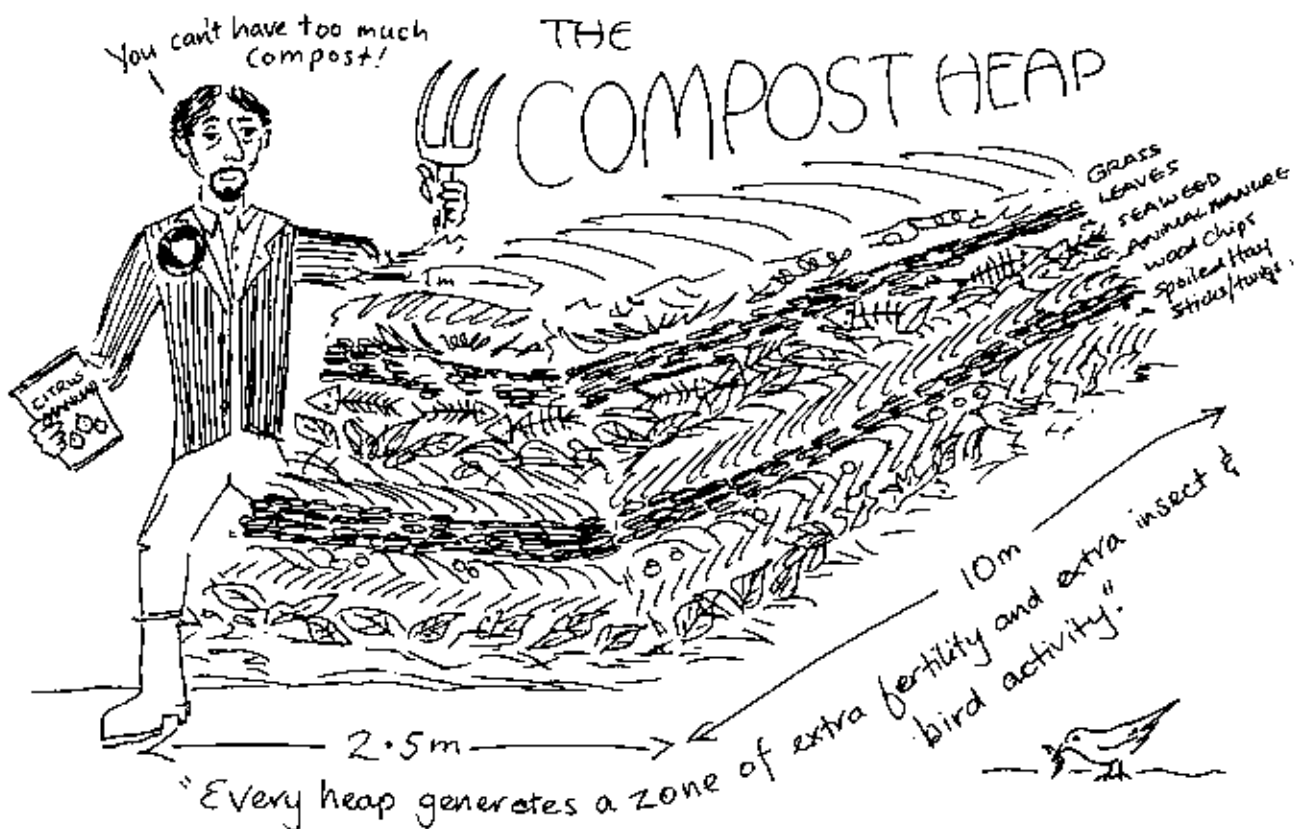 You can't have too much
compost!
THE
COMPOST HEAP
GRASS
LEAVES
SEAWEED
ANIMAL MANURE
WOOD Chips
Spoiled Hay
Sticks/twigs.
CITRUS
1m
10m
2.5m
"Every heap generates a zone of extra fertility and extra insect &
bird activity".